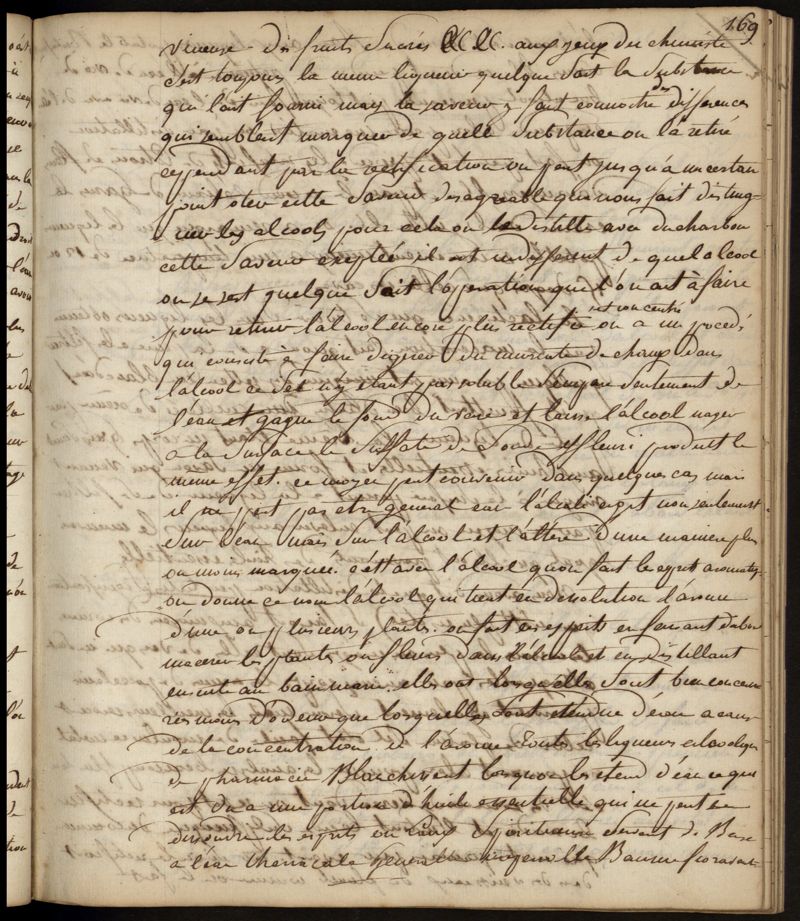 169
vineuse des fruits sucrés &c &c. aux yeux du chimiste
c'est toujours la meme liqueur quelque soit la substance
qui l'ait fourni mais la saveur y fait connoitre des differences
qui semblent marquer de quelle substance on l'a retiré
cependant par la rectification on peut jusqu'à un certain
point oter cette saveur desagreable qui nous fait disting-
-uer les alcools pour cela on le distille avec du charbon
cette saveur exeptée il est indifferent de quel alcool
on se sert quelque soit l'operation que l'on ait à faire
pour retirer l'alcool encore plus rectifié et concentré on a un procedé
qui consiste à faire digerer du muriate de chaux dans
l'alcool ce sel n'y etant pas soluble s'empare seulement de
l'eau et gagne le fond du vase et laisse l'alcool nager
a la surface le sulfate de soude effleuri produit le
meme effet. ce moyen peut convenir dans quelques cas mais
il ne peut pas etre general car l'alcali agit non seulement
sur l'eau mais sur l'alcool et l'altere d'une maniere plus
ou moins marquée. c'est avec l'alcool qu'on fait les esprits aromatiq-
on donne ce nom l'alcool qui tient en dissolution l'arome
d'une ou plusieurs plantes. on fait ces esprits en faisant d'abord
macerer les plantes ou fleurs dans l'alcool et en distillant
ensuite au bain marie. elles ont lorsqu'elles sont bien concen
rés moins d'odeur que lorsquelles sont etendue d'eau a cause
de la concentration de l'arome toutes les liqueurs alcooliques
de pharmacie blanchissent lorsquon les etend d'eau ce qui
est du a une portion d'huile essentielle qui ne peut se
dissoudre les esprits ou servent de base
a l'eau theriacale generale Baume fioraventi